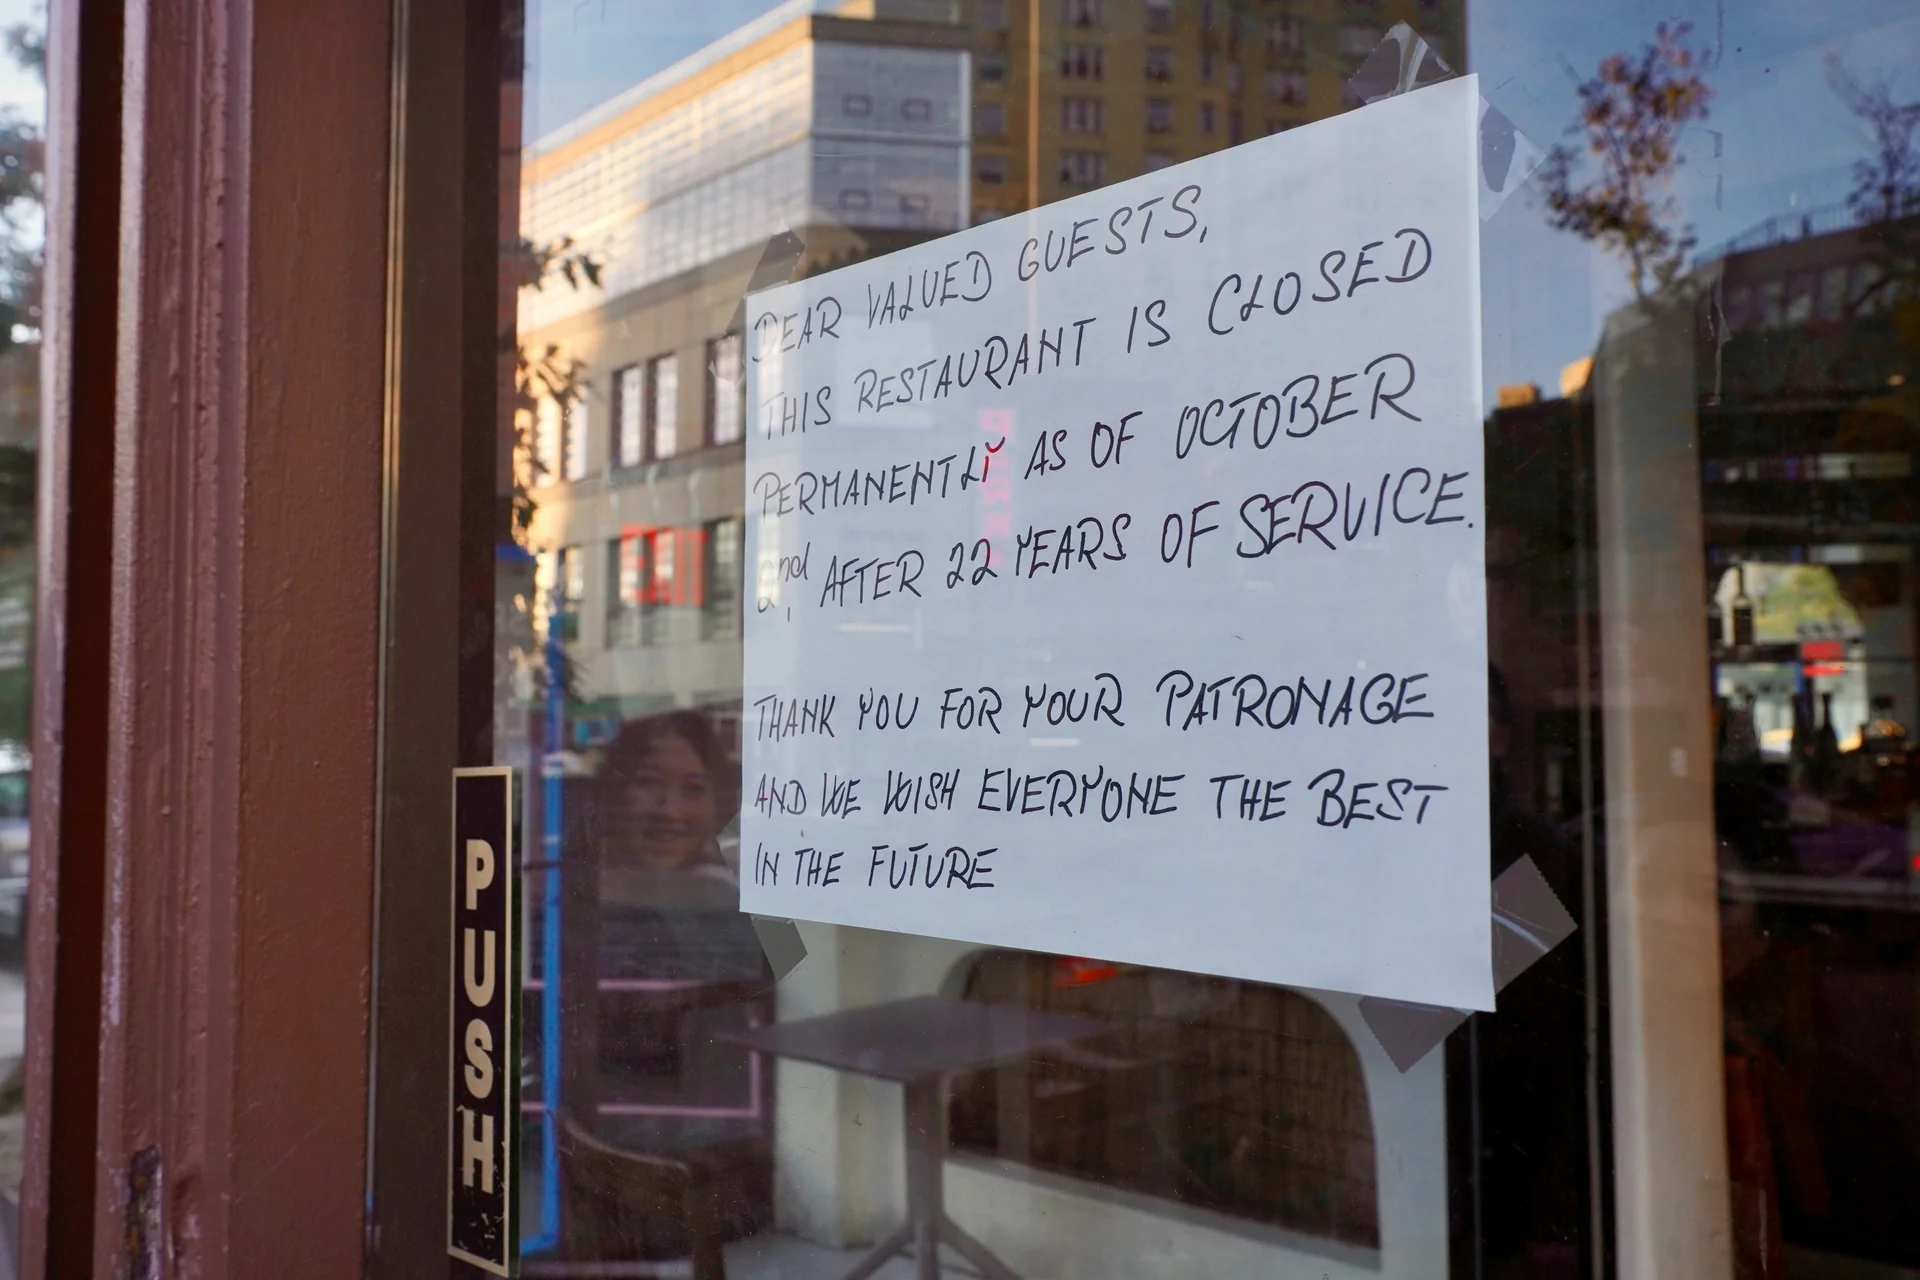 DEAR VALUED GUESTS,
THIS RESTAURANT IS CLOSED
PERMANENTLY AS OF OCTOBER
2nd, AFTER 22 YEARS OF SERVICE.
THANK YOU FOR YOUR PATRONAGE
AND WE WISH EVERYONE THE BEST
IN THE FUTURE
PUSH
EXIT